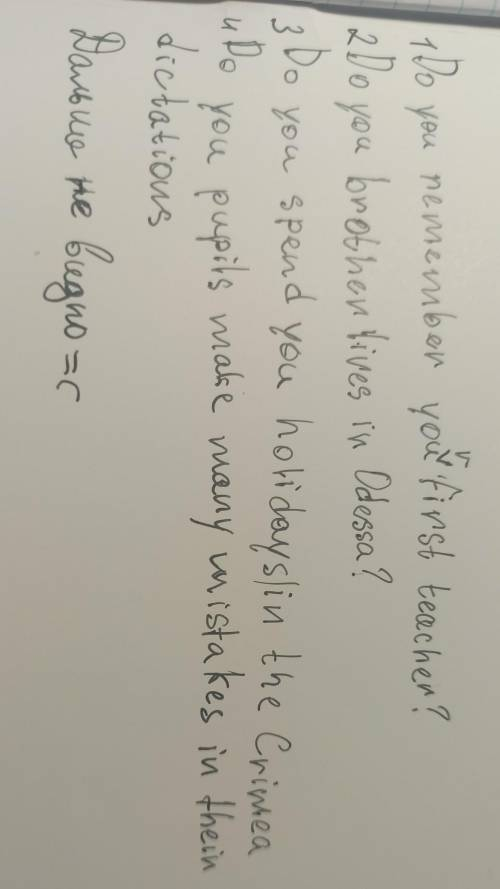 1 Do you remember your first teacher?
2 Do you brother lives in Odessa?
3 Do you spend you holidays in the Crimea
4 Do you pupils make many mistakes in thein
dictations
Дальше не видно =с